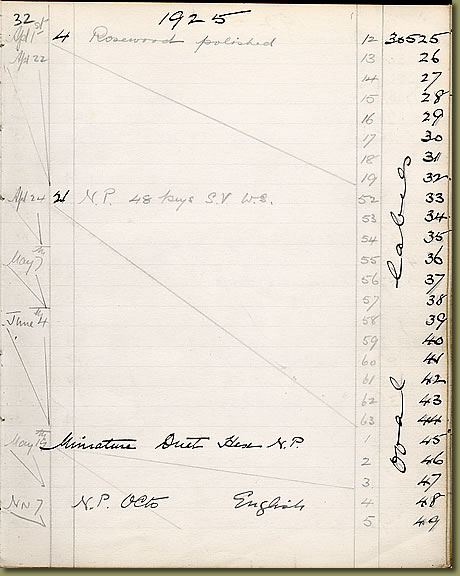 32 1925
Apl 1st 4 Rosewood polished 12 30525
Apl 22 13 26
14 27
15 28
16 29
17 30
18 31
19 32
Apl 24 21 N.P. 48 keys S.V W.S. 52 33
53 34
54 35
May 7th 55 36
56 37
57 38
June 4th 58 39
59 40
60 41
61 42
62 43
63 44
May 19th Miniature Duet Hex N.P. 1 45
2 46
3 47
7 N.P. Octo English 4 48
5 49
oval labels